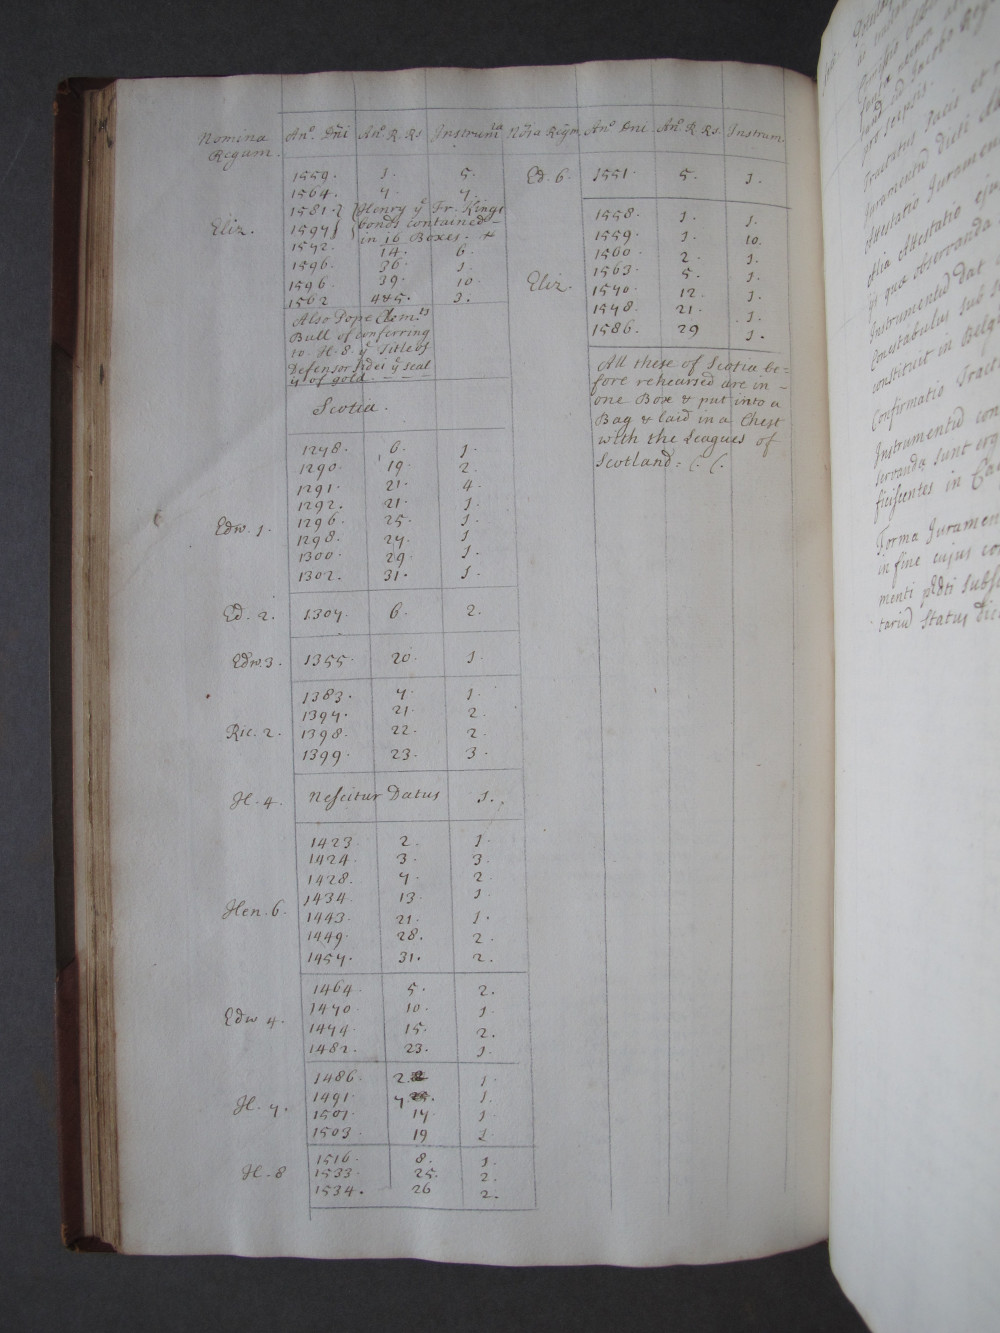 Nomina Regum. Ano. Dni Ano. R. Rs Instrumta
1559. 1. 5.
1564. 7. 7.
1581. Henry ye Fr. Kings
Eliz. 1597 bonds contained
in 16 Boxes.
1572. 14. 6.
1596. 36. 1.
1596. 39. 10.
1562 445. 3.
Also Pope Clem.ts
Bull of conferring
to H. 8. ye Title of
Defensor fidei ye seal
is of gold.
Scotia.
1278. 6. 1.
1290. 19. 2.
1291. 21. 4.
1292. 21. 1.
Edw. 1. 1296. 25. 1.
1298. 27. 1
1300. 29. 1.
1302. 31. 1.
Ed. 2. 1307. 6. 2.
Edw. 3. 1355. 20. 1.
1383. 7. 1.
1397. 21. 2.
Ric. 2. 1398. 22. 2.
1399. 23. 3.
H. 4. Nescitur Datus 1.
1423. 2. 1.
1424. 3. 3.
1428. 7. 2.
1434. 13. 1.
Hen. 6. 1443. 21. 1.
1449. 28. 2.
1457. 31. 2.
1464. 5. 2.
1470. 10. 1.
Edw 4. 1474. 15. 2.
1482. 23. 1.
1486. 2. 1.
1491. 7. 1.
H. 7. 1501. 17. 1.
1503. 19 1.
1516. 8. 1.
H. 8 1533. 25. 2.
1534. 26 2.
Nōia Regm. Ano. Dni Ano. R. Rs. Instrum.
Ed. 6. 1551. 5. 1.
1558. 1. 1.
1559. 1. 10.
1560. 2. 1.
1563. 5. 1.
Eliz. 1570. 12. 1.
1578. 21. 1.
1586. 29 1.
All these of Scotia be=
fore rehearsed are in
one Box & put into a
Bag & laid in a Chest
with the Leagues of
Scotland:
pro seipsis.
Tractatus Pacis et
Juramentū dicti
Attestatio Juramen
Alia Attestatio ejus
qt quæ observanda
Instrumentū Dat
Conestabulus sub
constituit in Belg
Confirmatio Tract
Instrumentū con
servanda sunt erg
ficiscentes in Ca
Forma Juramen
in fine cujus con
menti pdti subs
tariū Status die